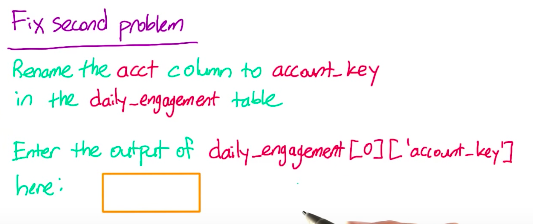 Fix second problem
Rename the acct column to account_key
in the daily_engagement table
Enter the output of daily_engagement[0]['account_key']
here: